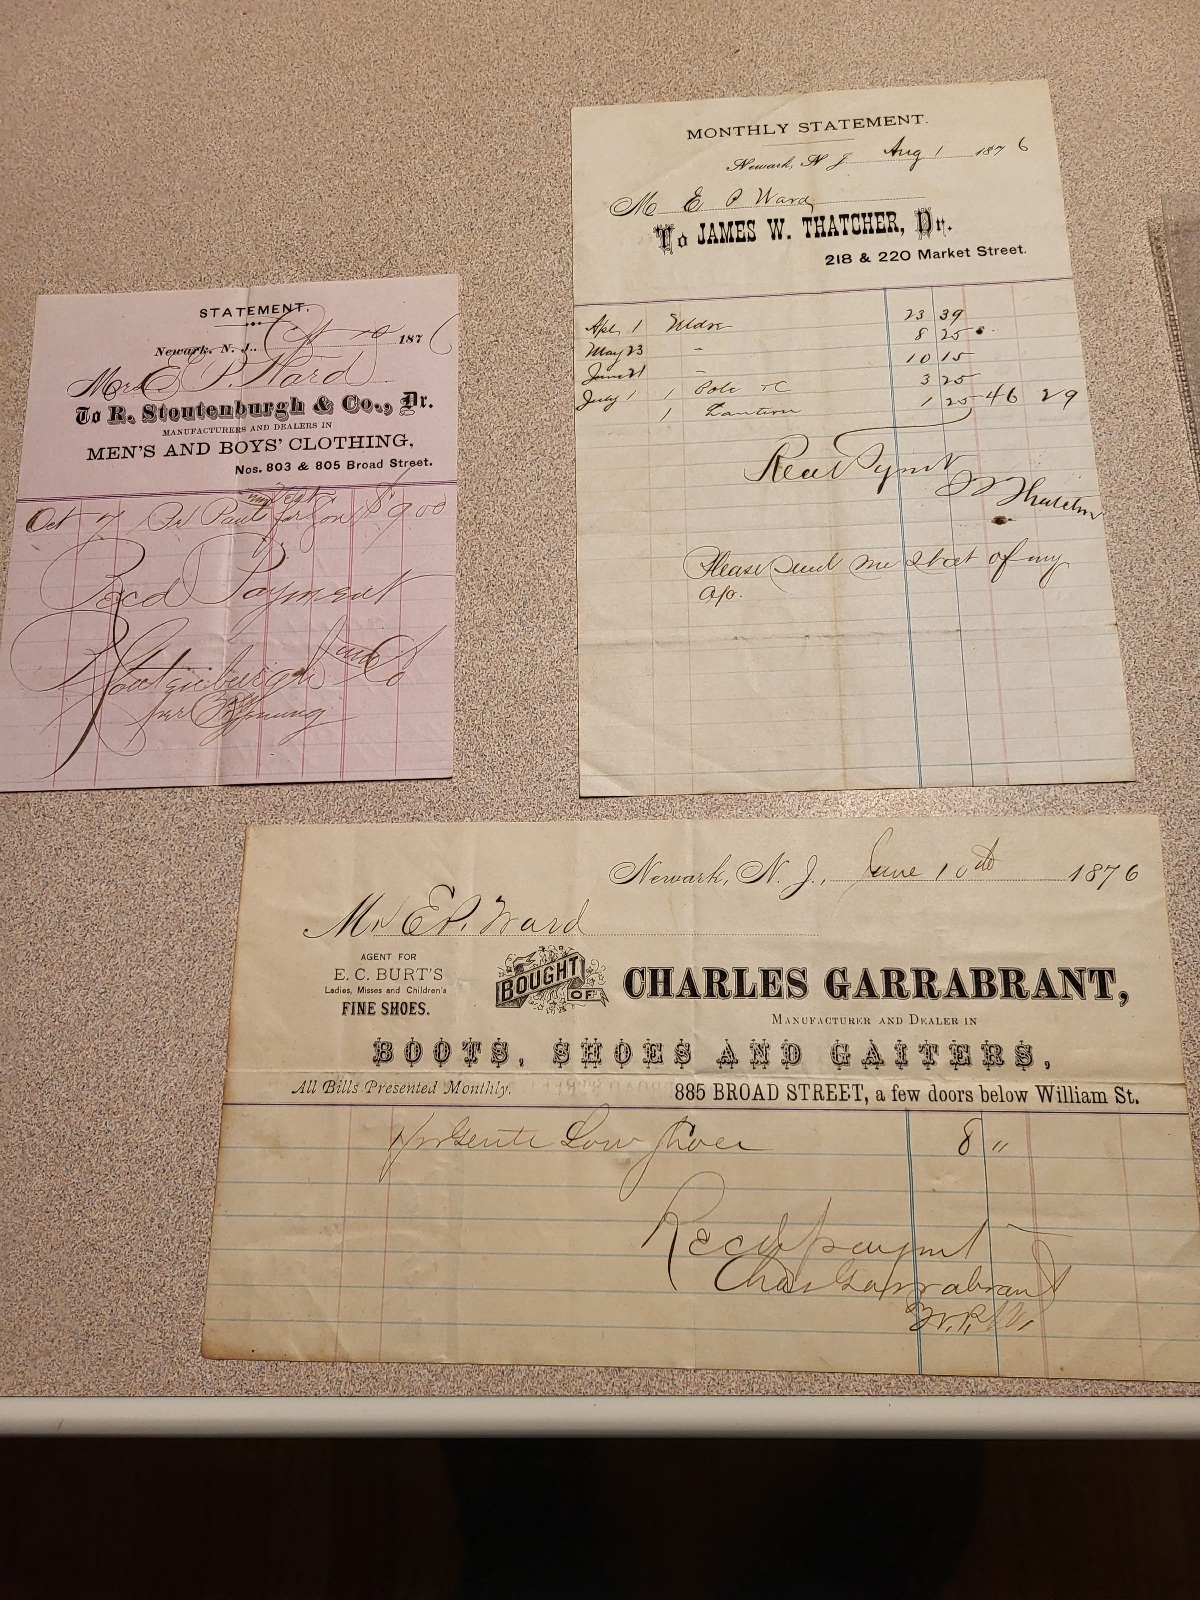 STATEMENT.
Newark, N. J., Oct 10 1876
Mrs E. P. Ward
To R. Stoutenburgh & Co., Dr.
MANUFACTURERS AND DEALERS IN
MEN'S AND BOYS' CLOTHING,
Nos. 803 & 805 Broad Street.
Vest
Oct 7 Pr Pants for Son $9.00
Recd Payment
R Stoutenburgh and Co
per
MONTHLY STATEMENT.
Newark, N. J. Aug 1 1876
M E P Ward
To JAMES W. THATCHER, Dr.
218 & 220 Market Street.
Apl 1 Mdse 23 39
May 23 " 8 25
June 21 " 10 15
July 1 1 Pole &C 3 25
1 Lantern 1 25 46 29
Recd Pymt
J W Thatcher
Please send me Stat of my
a/c.
Newark, N. J., June 10th 1876
Mr E. P. Ward
AGENT FOR
E. C. BURT'S
Ladies, Misses and Children's
FINE SHOES.
BOUGHT OF
CHARLES GARRABRANT,
MANUFACTURER AND DEALER IN
BOOTS, SHOES AND GAITERS,
All Bills Presented Monthly.
885 BROAD STREET, a few doors below William St.
1 pr Gents Low Shoes 8 "
Recd payment
Chas Garrabrant